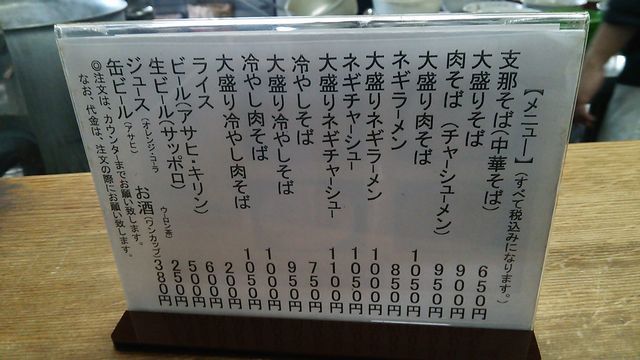 【メニュー】(すべて税込みになります。)
支那そば(中華そば) 650円
大盛りそば 900円
肉そば(チャーシューメン) 950円
大盛り肉そば 1050円
ネギラーメン 850円
大盛りネギラーメン 1000円
ネギチャーシュー 1050円
大盛りネギチャーシュー 1100円
冷やしそば 750円
大盛り冷やしそば 950円
冷やし肉そば 1000円
大盛り冷やし肉そば 1050円
ライス 200円
ビール(アサヒ・キリン) 600円
生ビール(サッポロ) 500円
ジュース(オレンジ・コーラ ウーロン茶) 250円
缶ビール(アサヒ) お酒(ワンカップ) 380円
◎注文は、カウンターまでお願い致します。
なお、代金は、注文の際にお願い致します。